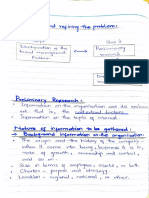 and refining the problem:
Identification of the
broad management
Problem
Preliminary
Preliminary Research:
Information on the organisation and its environ
ment that is, the contextual factors.
Information on the topic of interest.
Nature of information to be gathered:
Background information on the organisation:
The origin and the history of the company
when it came into being, business it is in,
rate of growth, ownership and control,
and so on.
Size in terms of employees, assets, or both
Charter - purpose and ideology
Location - regional, national, or other.